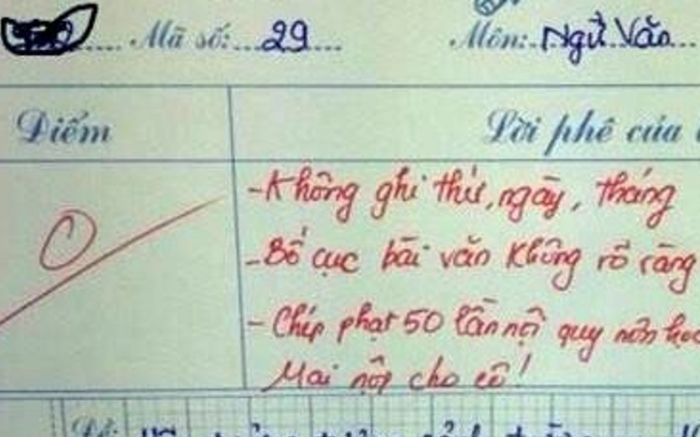 Mã số: 29 Môn: Ngữ Văn
Điểm Lời phê của
0 - Không ghi thứ, ngày, tháng
- Bố cục bài văn không rõ ràng
- Chép phạt 50 lần nội quy môn học
Mai nộp cho cô!
Đề: